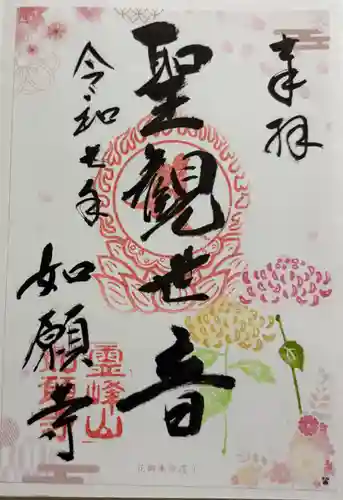 奉拝
聖観世音
令和七年
如願寺
霊峰山
如願寺